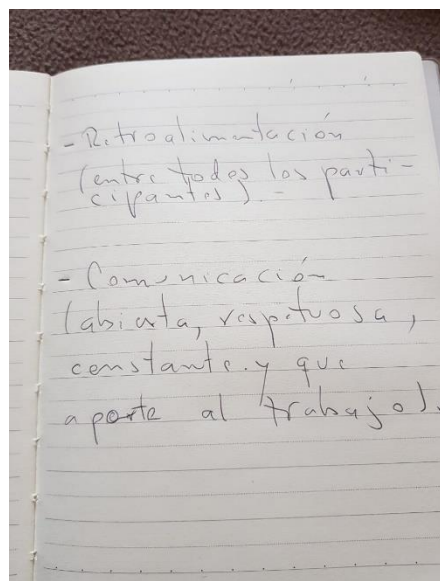 - Retroalimentación
(entre todos los parti-
cipantes). -
- Comunicación
(abierta, respetuosa,
constante y que
aporte al trabajo).